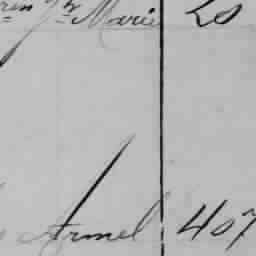 Jh Marie 20
Armel 407